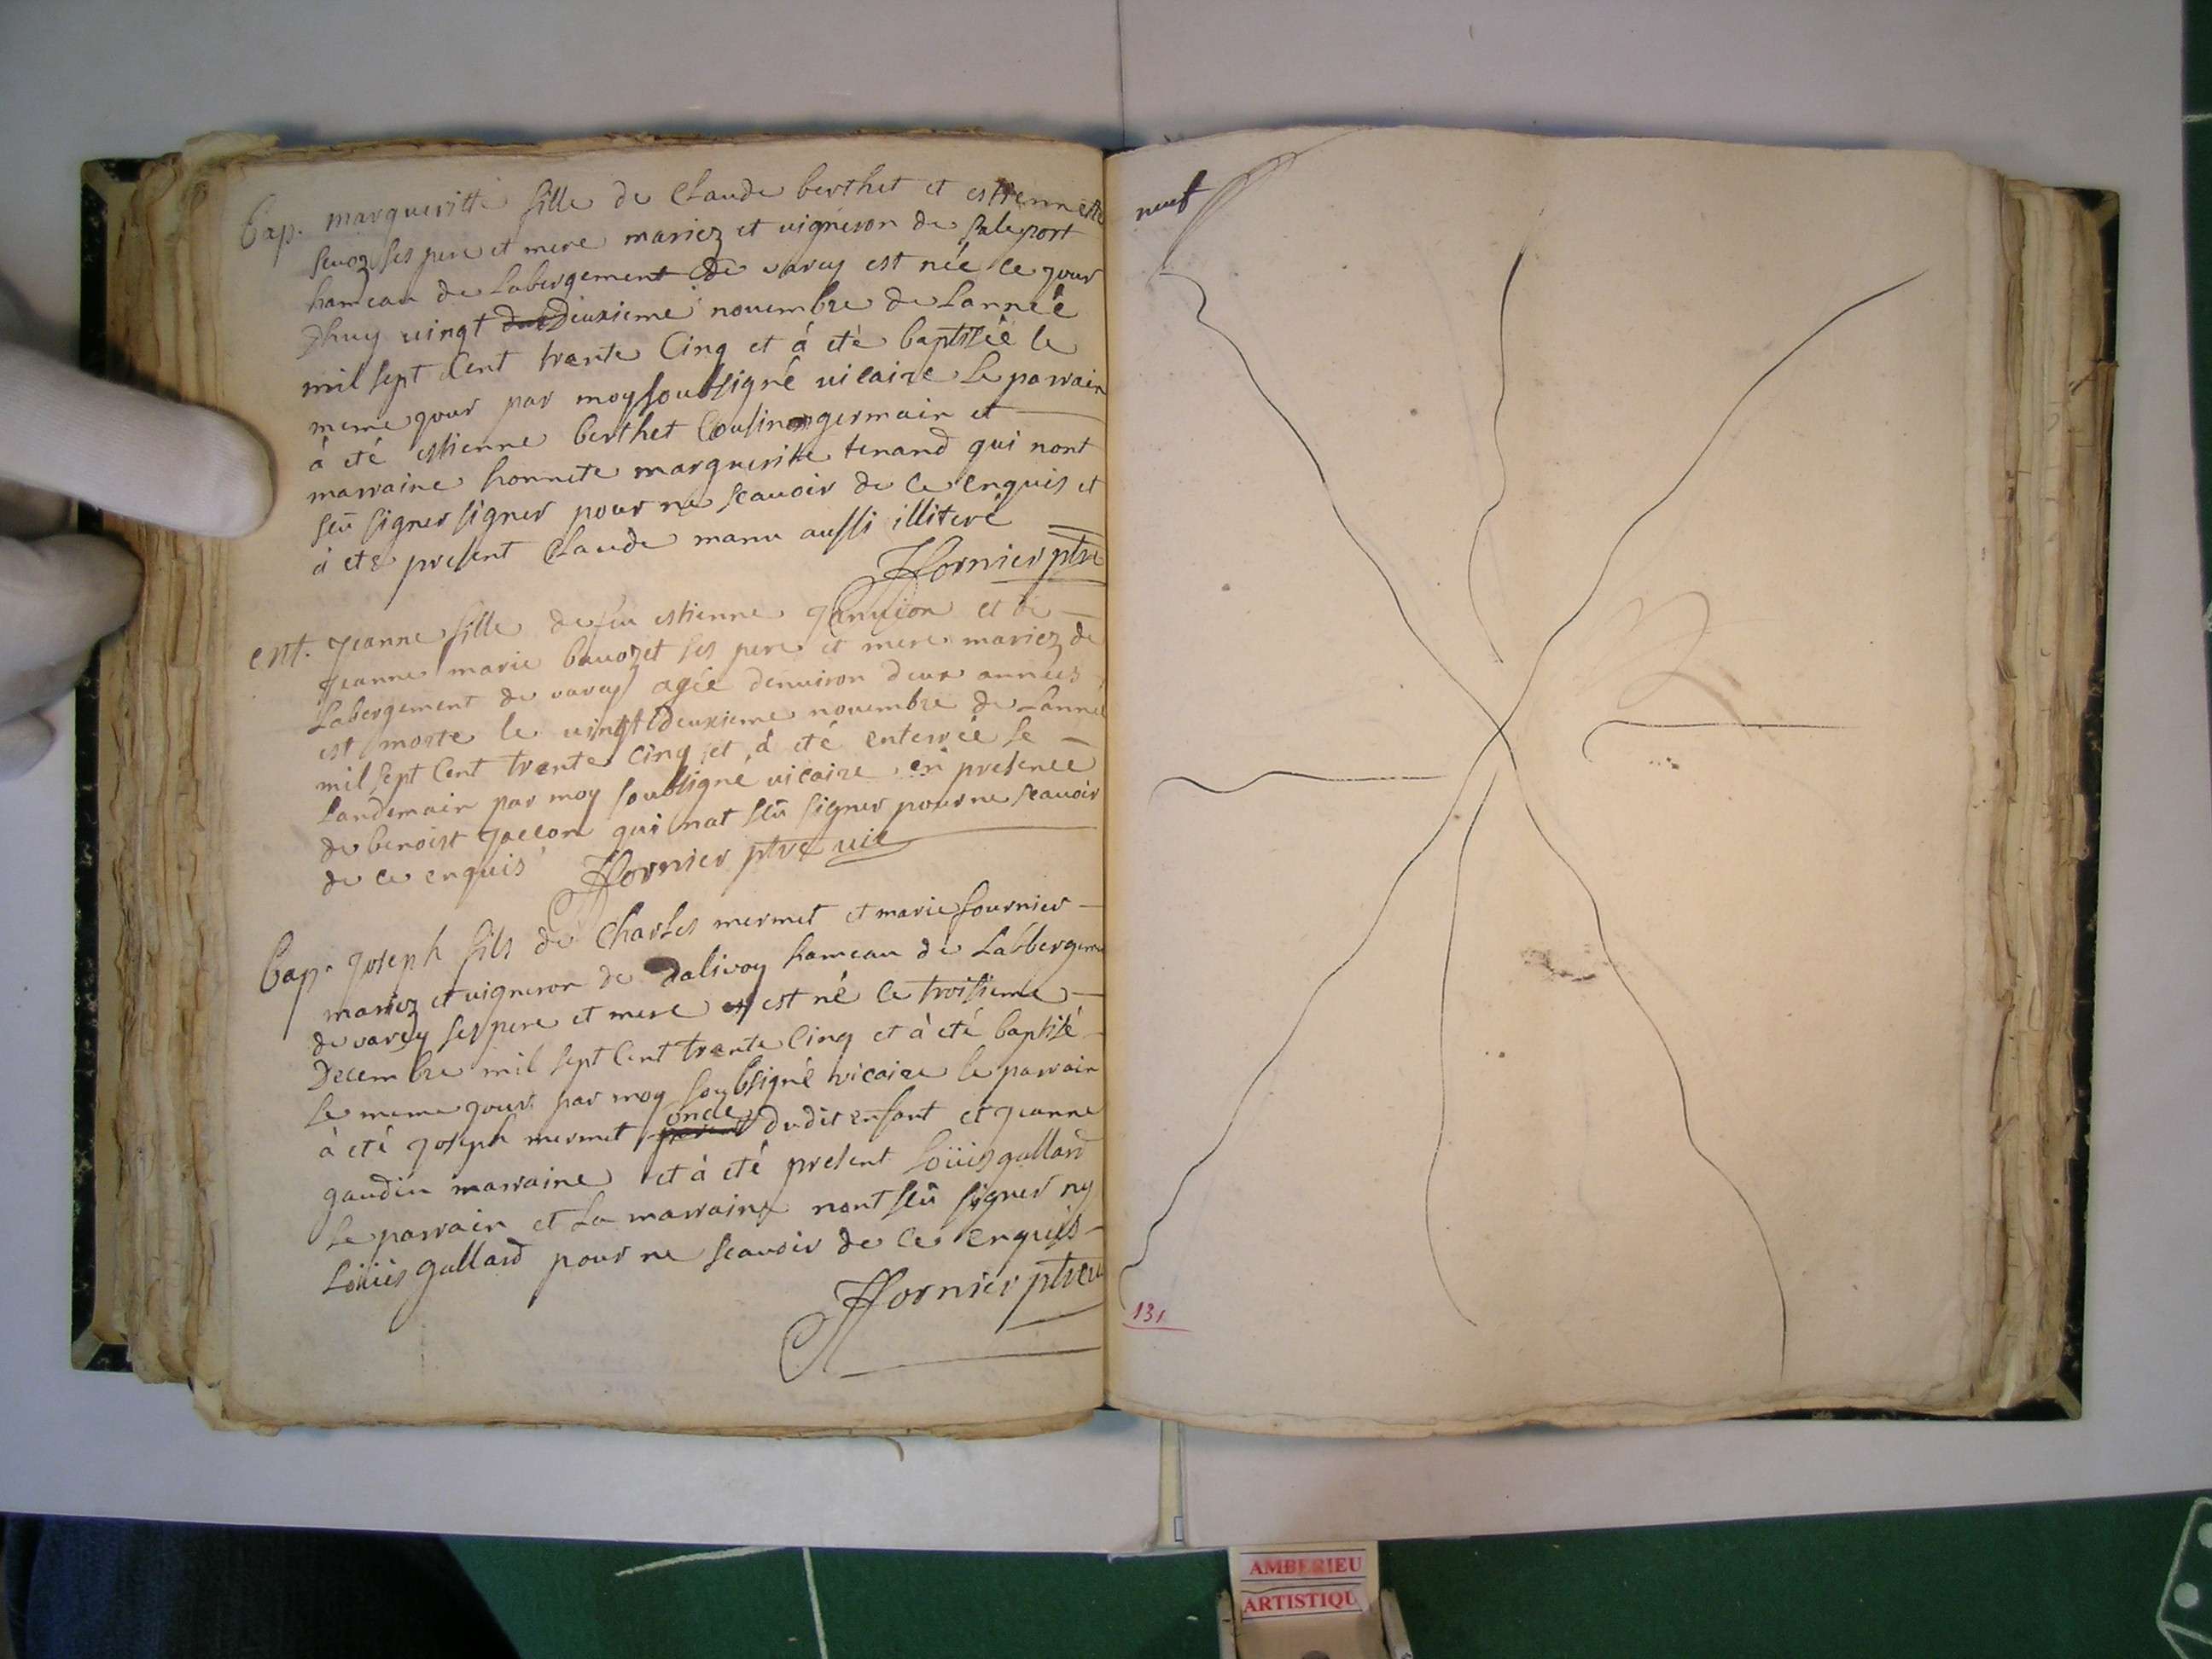 Bap. margueritte fille de Claude berthet et estiennette
ses pere et mere mariez et vigneron de Saleport
hameau de Labergement de varey est née ce jour
dhuy vingt deuxieme novembre de Lannéé
mil sept Cent trante Cinq et á eté baptiséé le
meme jour par moy soubsigné vicaire le parrain
á eté estienne berthet Cousin germain et
marraine honnete margueritte tenand qui nont
seû signer signer pour ne scavoir de ce enquis et
á eté present Claude manu aussi illiteré
Hornier ptre
ent. Jeanne fille de feu estienne et de
Jeanne marie bavozet ses pere et mere mariez de
Labergement de varey agéé denviron deux annéés
est morte le vingt deuxieme novembre de Lannéé
mil sept Cent trante Cinq et á eté enterréé le
Landemain par moy soubsigné vicaire en presence
de benoist Jacon qui nat seû signer pour ne scavoir
de ce enquis Hornier ptre vic
Bap. Joseph fils de Charles mermet et marie fournier
mariez et vigneron de dalivoy hameau de Labbergement
de varey ses pere et mere est né ce troisieme
Decembre mil sept Cent trante Cinq et à eté baptisé
Le meme jour par moy soubsigné vicaire le parrain
à eté Joseph mermet oncle dudit enfant et Jeanne
gaudin marraine et à eté present Loüis gallard
Le parrain et La marraine nont seû signer ny
Loüis gallard pour ne scavoir de ce enquis
Hornier ptre v
neuf
131
AMBERIEU
ARTISTIQU